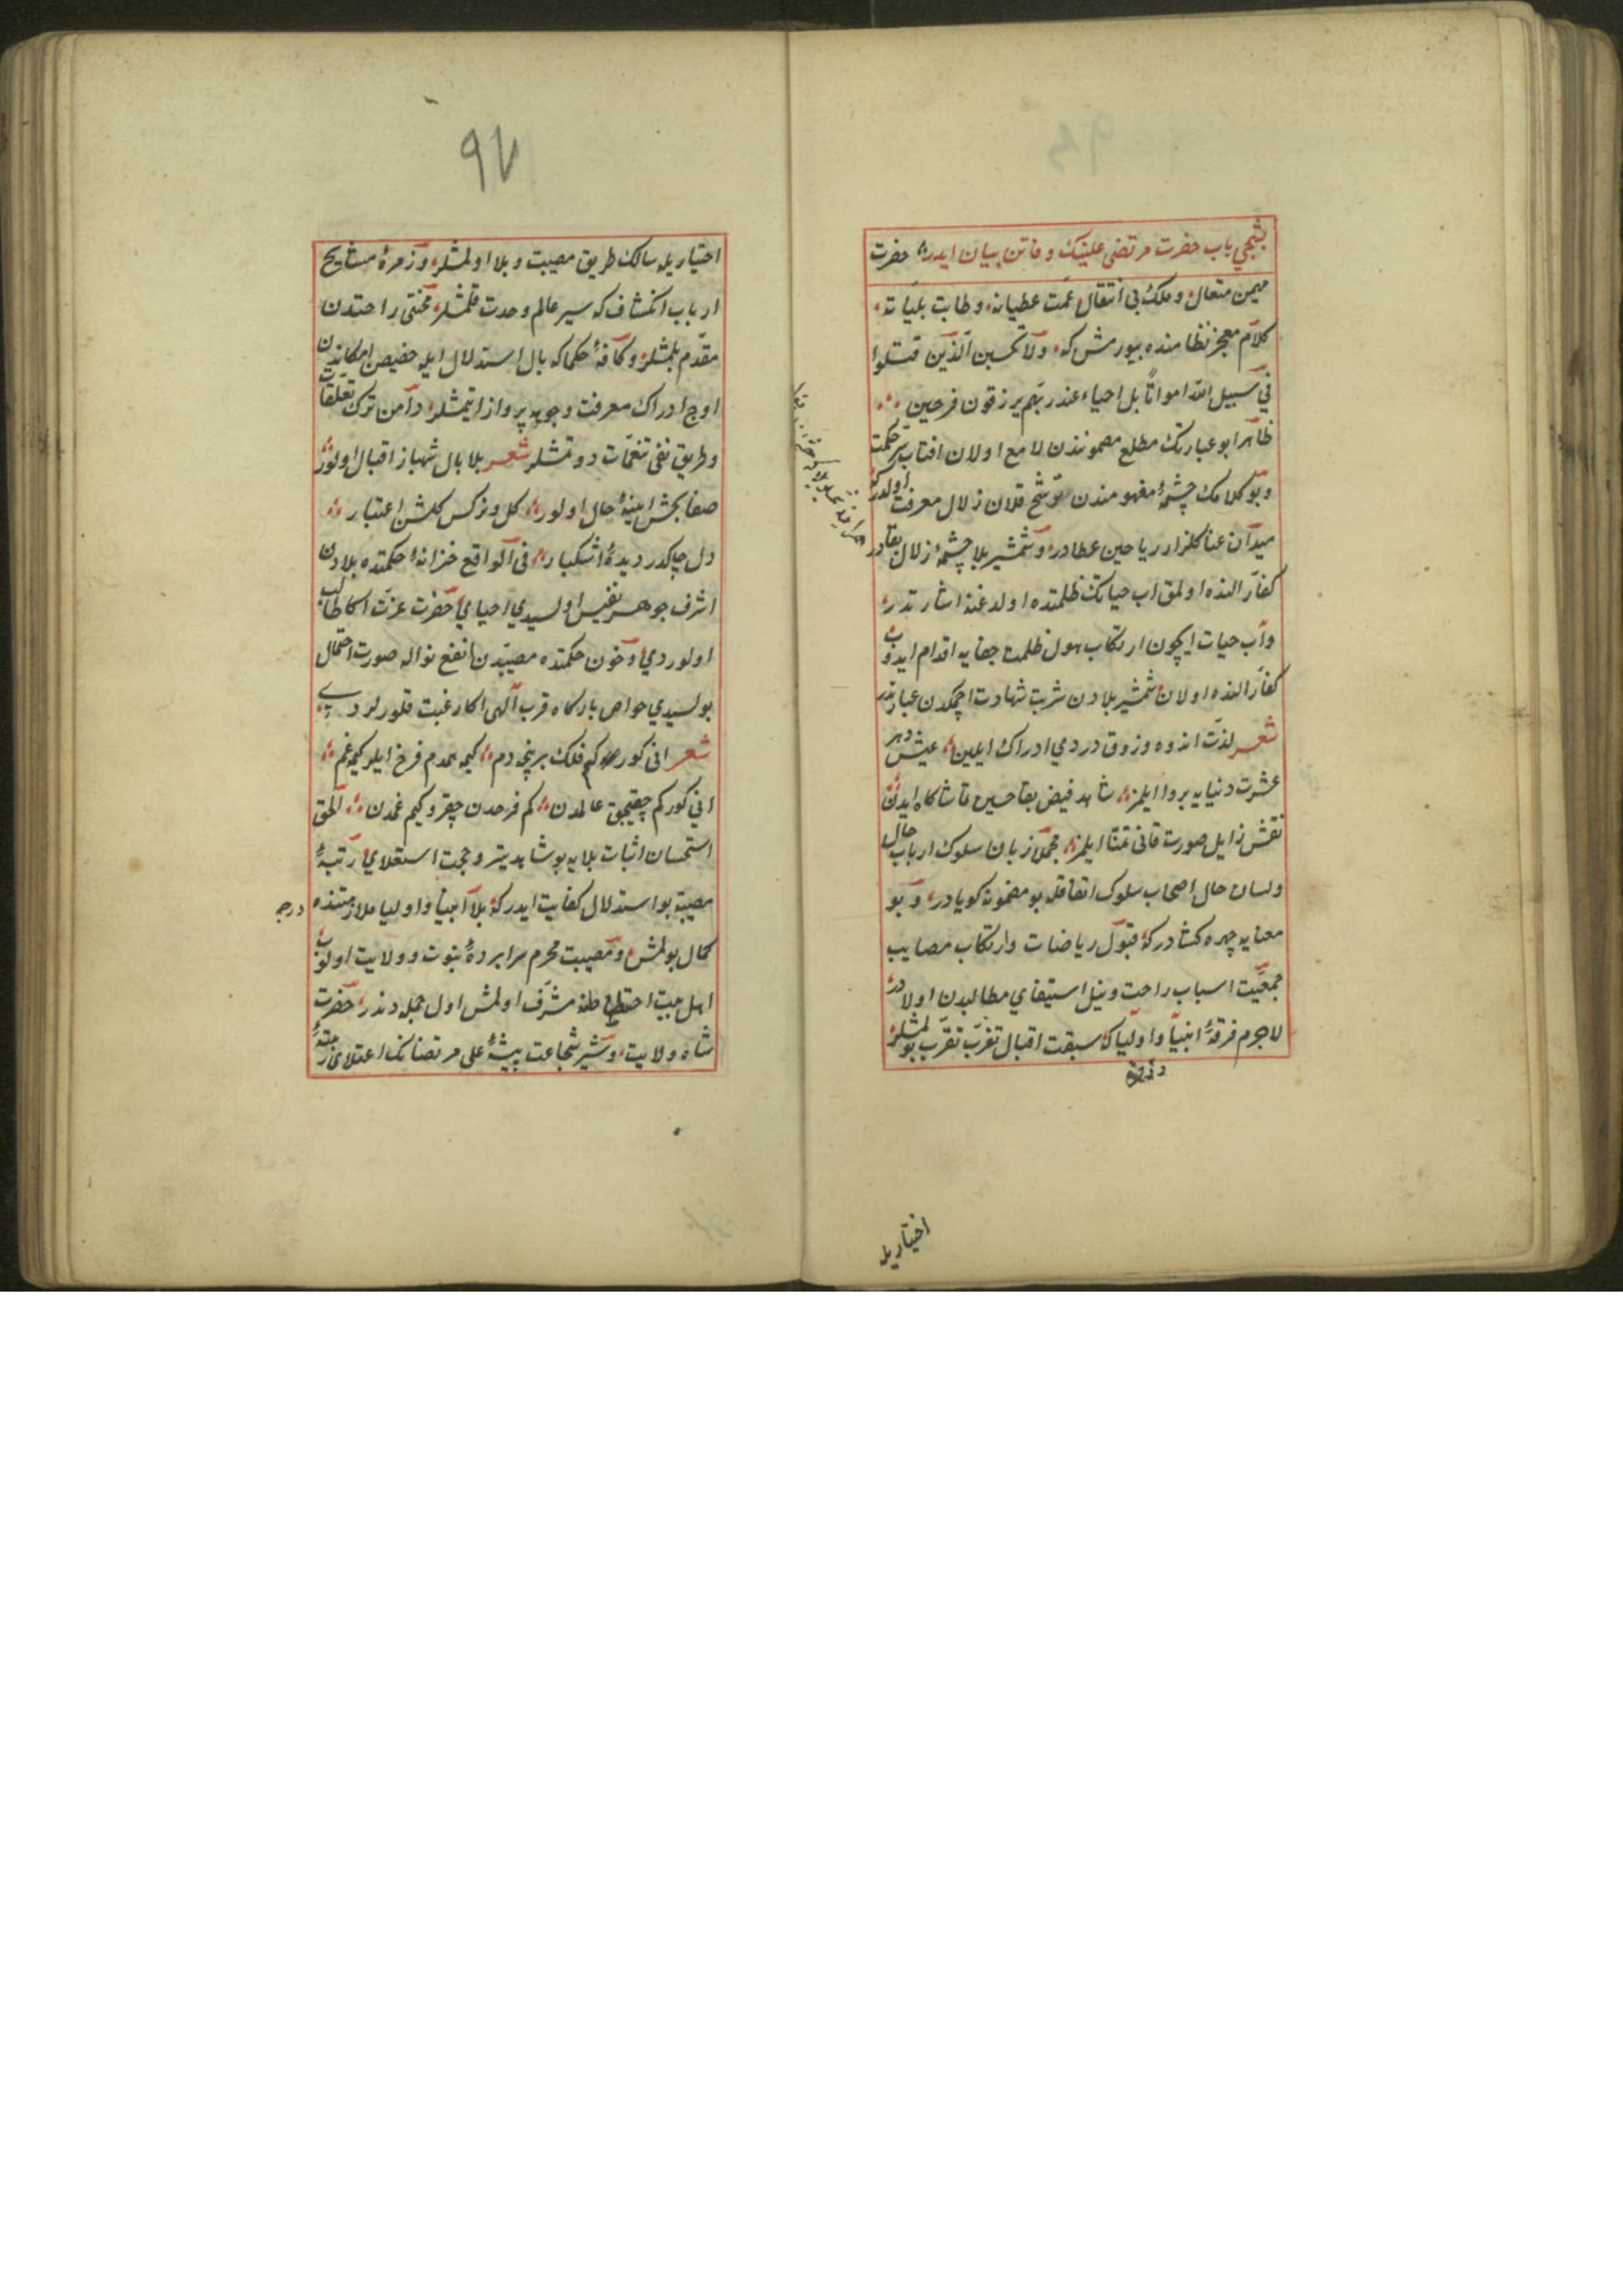 بشنجي باب حضرت مرتضى علينك وفاتن بيان ايدر حضرت
مهيمن متعال وملك بي انتقال عمت عطياته وطابت بلياته
كلام معجز نظامنده بيورمش كه ولا تحسبن الذين قتلوا
في سبيل الله امواتاً بل احياء عند ربهم يرزقون فرحين
ظاهرا بو عبارتك مطلع مضمونندن لامع اولان افتاب سر حكمت
وبو كلامك چشمهٔ مفهومندن ترشح قلان زلال معرفت اولدر كه
ميدان عنا كلزار رياحين عطادر وشمشير بلا چشمهٔ زلال بقادر
كفار النده اولمق اب حياتك ظلمتده اولدغنه اشارتدر
وآب حيات ايچون ارتكاب هول ظلمت جفايه اقدام ايدوب
كفار النده اولان شمشير بلادن شربت شهادت ايچمكدن عبارتدر
شعر لذت اندوه وذوق دردي ادراك ايلين عيش دهر
عشرت دنيايه پروا ايلمز شاهد فيض بقا حسين تماشاكاه ايدن
نقش زايل صورت فاني تمنا ايلمز مجملا زبان سلوك ارباب حال
ولسان حال اصحاب سلوك اتفاقله بو مضمونه كويادر وبو
معنايه چهره كشادر كه قبول رياضات وارتكاب مصايب
جمعيت اسباب راحت ونيل استيفاي مطالبدن اولادر
لاجرم فرقهٔ انبيا واوليا كه سبقت اقبال تقرب بولمشلر
اختياريله
اختياريله سالك طريق مصيبت وبلا اولمشلر وزمرهٔ مشايخ
ارباب انكشاف كه سير عالم وحدت قلمشلر محنتى راحتدن
مقدم بلمشلر وكافهٔ حكما كه بال استدلال ايله حضيض امكاندن
اوج ادراك معرفت وجوبه پرواز ايتمشلر دامن ترك تعلقات
وطريق نفى تنعمات دوتمشلر شعر بلا بال شهباز اقبال اولور
صفا بخش اينهٔ حال اولور كل ونركس كلشن اعتبار
دل چاكدر ديدهٔ اشكبار فى الواقع خزانهٔ حكمتده بلادن
اشرف جوهر نفيس اولسيدي احباي حضرت عزت اكا طالب
اولوردي وخوان حكمتده مصيبتدن انفع نواله صورت احتمال
بولسيدي خواص باركاه قرب الهى اكا رغبت قلورلردي
شعر انى كور كم فلك بر نچه دم كيمه همدم فرح ايلر كيمه غم
انى كور كم چقيجق عالمدن كم فرحدن چقر وكيم غمدن الحق
استحسان اثبات بلايه بو شاهد يتر وحجت استعلاي رتبهٔ
مصيبته بو استدلال كفايت ايدر كه بلا انبيا واوليا ملازمتنده درجهٔ
كمال بولمش ومصيبت محرم سرابردهٔ نبوت وولايت اولوب
اهل بيت اختلاطنه مشرف اولمش اول جمله دندر حضرت
شاه ولايت وشير شجاعت پيشهٔ على مرتضانك اعتلاى رتبهٔ